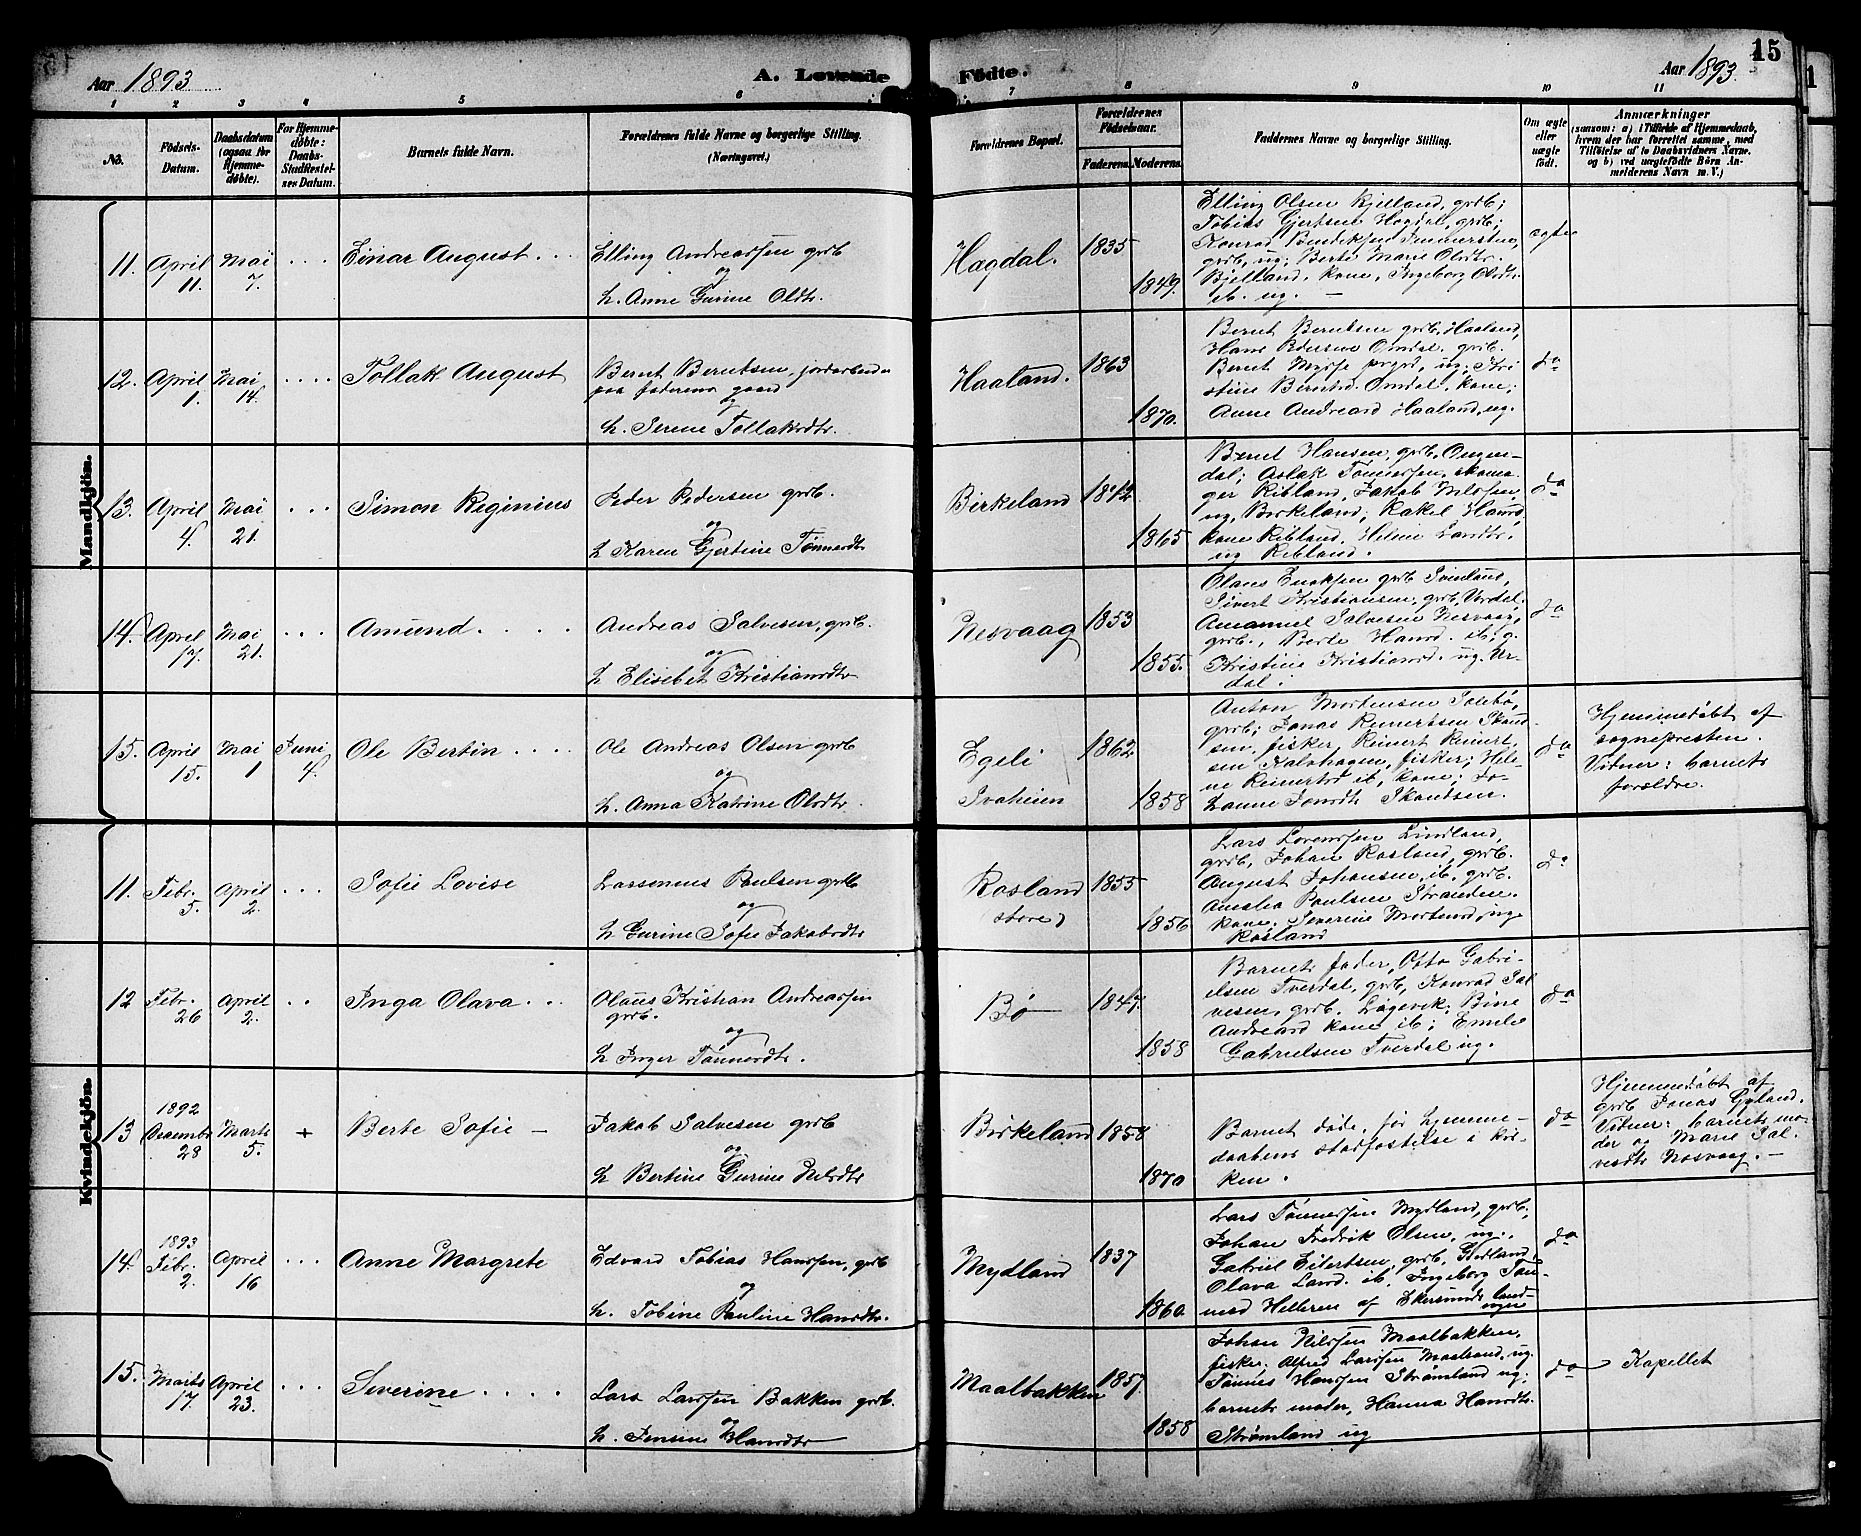 15
Aar 1893
A. Levende Fødte.
Aar 1893.
1 2 3 4 5 6 7 8 9 10 11
No.
Fødsels-
Datum.
Daabsdatum
(ogsaa for
Hjemme-
døbte).
For Hjemme-
døbte:
Daabs-
Stadfæstel-
ses Datum.
Barnets fulde Navn.
Forældrenes fulde Navne og borgerlige Stilling.
(Næringsvei.)
Forældrenes Bopæl.
Forældrenes
Fødselsaar.
Faderens. Moderens.
Faddernes Navne og borgerlige Stilling.
Om ægte
eller
uægte
født.
Anmærkninger
(saasom: a) i Tilfælde af Hjemmedaab,
hvem der har forrettet samme, med
Tilføielse af to Daabsvidners Navne,
og b) ved uægtefødte Børn An-
melderens Navn m. V.)
Mandkjön.
11. April 11. Mai 7. . . . Einar August . .
Elling Andreassen grdb
og
h. Anne Gurine Olsdtr.
Hagdal. 1835 1849.
Elling Olsen Kjelland, grdb;
Tobias Gjertsen Hagdal, grdb;
Konrad Bendiksen
grdb, ug; Berte Marie Olsdtr.
Bjelland, kone, Ingeborg Olsdtr.
ib. ug. —
ægte
12. April 1. Mai 14. . . . . Tollak August
Bernt Berntsen, jordarbeider
paa faderens gaard
og
h. Serine Tollaksdtr.
Haaland. 1863 1870.
Bernt Berntsen grdb, Haaland,
Hans Pedersen Omdal, grdb.
Bernt ug; Kri-
stine Berntsd. Omdal, kone;
Anne Andreasd Haaland, ug.
do
13. April 4. Mai 21. . . . Simon Reginius
Peder Pedersen grdb.
og
h Karen Gjertine Tønnesdtr
Birkeland 1842 1865
Bernt Hansen, grdb, Ommun-
dal; Aslak Tønnessen, skoma-
ger Ribland, Jakob Nilssen,
ug, Birkeland; Rakel Hansd,
kone Ribland, Helene Larsdtr,
ug Ribland.
do
14. April 17. Mai 21. . . . Amund . . . .
Andreas Salvesen, grdb.
og
h Elisebet Kristiansdtr
Nesvaag 1853 1855.
Olaus Enoksen grdb Svinland,
Sivert Kristiansen, grdb, Urdal.
Amanuel Salvesen Nesvaag,
grdb., Berte Hansd. ib, g.
Kristine Kristiansd. ug. Ur-
dal.
do
15. April 15. Mai 1 Juni 4. Ole Bertin . . . .
Ole Andreas Olsen grdb
og
h. Anna Katrine Olsdtr.
Egeli
Svaheien 1862 1858
Anton Mortensen Solebø,
grdb; Jonas Reinertsen Skand-
sen, fisker, Reinert Reinert-
sen Kalvhagen, fisker; Hele-
ne Reinertsd ib, kone; Jo-
hanne Jonsdtr Skandsen.
do
Hjemmedøbt af
sognepresten.
Vidner: barnets
forældre.
Kvindekjön.
11. Febr. 5. April 2. . . . Sofie Lovise
Lassenius Paulsen grdb
og
h Gurine Sofie Jakobsdtr
Rosland
(store) 1855 1856
Lars Lorentsen Lindland,
grdb, Johan Rosland, grdb.
August Johansen, ib, grdb.
Amalia Paulsen Stranden
kone, Severine Mortensd, ug
Rosland
do
12 Febr. 26 April 2. . . Inga Olava . . .
Olaus Kristian Andreassen
grdb.
og
h Inger Tønnesdtr.
Bø 1847. 1858
Barnets fader, Otto Gabri-
elsen Tverdal, grdb, Konrad Sal
vesen, grdb. Løgevik; Bine
Andreasd kone ib; Emilie
Gabrielsen Tverdal ug.
do
13 1892 December 28 Marts 5. + Berte Sofie —
Jakob Salvesen grdb
og
h Bertine Gurine Nilsdtr
Birkeland 1858 1870
Barnet døde før hjemme-
daabens stadfæstelse i kir-
ken.
do
Hjemmedøbt af
grdb Jonas Gyland.
Vidner: barnets mo-
der og Marie Sal-
vesdtr Nesvaag. —
14. 1893 Febr. 2. April 16 . . . Anne Margrete
Edvard Tobias Hanssen, grdb
og
h. Tobine Pauline Hansdtr.
Mydland 1837 1860.
Lars Tønnessen Mydland, grdb,
Johan Fredrik Olsen, ug.,
Gabriel Eilertsen, grdb,
Olava Larsd. ib, Ingeborg Tøn-
nesd Helleren af Ekersunds land-
sogn
do
15. Marts 17. April 23. . . . Severine . . . .
Lars Larssen Bakken grdb.
og
h. Jensine Hansdtr
Maalbakken 1857. 1858
Johan Nilssen Maalbakken,
fisker; Alfred Larssen ug.
Tønnes Hanssen Strømland ug;
barnets moder, Hanna Hansdtr.
Strømland ug
do
Kapellet